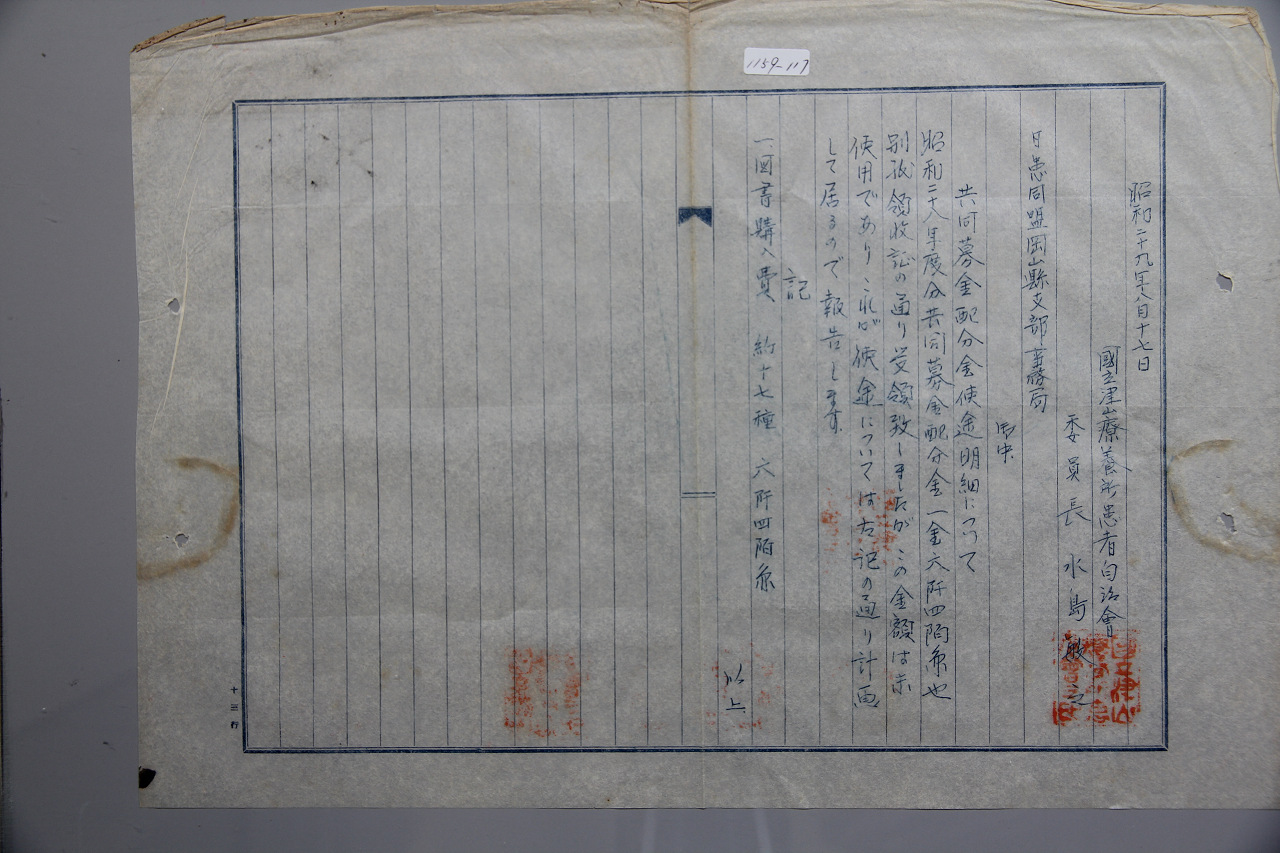 1159-117
昭和二十九年八月十七日
國立津山療養所患者自治會
委員長 水島敏之
日患同盟岡山縣支部事務局
御中
共同募金配分金使途明細について
昭和二十八年度分共同募金配分金一金六阡四陌円也
別紙領收証の通り受領致しましたがこの金額は未
使用でありこれが使途については左記の通り計画
して居るので報告します
記
一、図書購入費 約十七種 六阡四陌円
以上
十三行